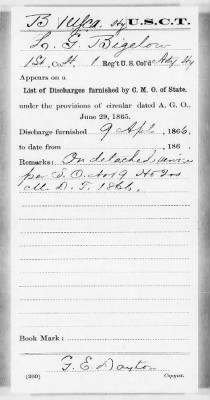 B 1 Hfra. Hy U.S.C.T.
L. G. Bigelow
1st. Lt. 1 Reg't U.S. Col'd Hby Hy
Appears on a
List of Discharges furnished by C. M. O. of State.
under the provisions of circular dated A. G. O.,
June 29, 1865.
Discharge furnished 9 Apl, 1866,
to date from , 186 .
Remarks: On detached service
per S. O. No 19 Hd Qrs
M. D. T. 1866.
Book Mark:
G. E. Dayton
(360) Copyist.